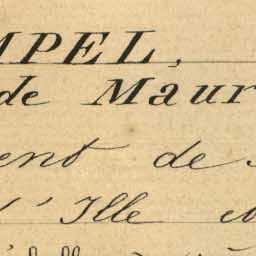 MPEL,
de Maur
ent de
d'Ille